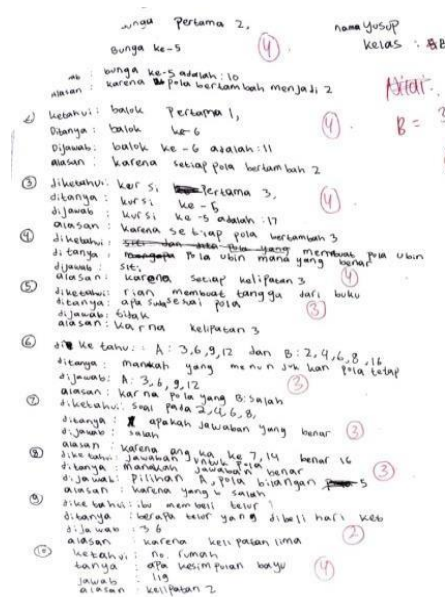 bunga Pertama 2,
nama Yusup
Bunga ke-5
4
kelas :
jab : bunga ke-5 adalah : 10
alasan : karena pola bertambah menjadi 2
Nilai :
B =
2 ketahui : balok Pertama 1,
Ditanya : balok ke-6
4
Dijawab : balok ke-6 adalah : 11
alasan : karena setiap pola bertambah 2
3 diketahui : kursi Pertama 3,
ditanya : kursi ke-5
4
dijawab : kursi ke-5 adalah : 17
alasan : karena setiap pola bertambah 3
4 diketahui : siti membuat pola ubin
ditanya : pola ubin mana yang benar
dijawab : siti
4
alasan : karena setiap kelipatan 3
5 diketahui : rian membuat tangga dari buku
ditanya : apa sesuai pola
3
dijawab : tidak
alasan : karna kelipatan 3
6 diketahu : A : 3,6,9,12 dan B : 2,4,6,8,16
ditanya : manakah yang menunjukkan pola tetap
dijawab : A : 3,6,9,12
3
alasan : karna pola yang B : salah
7 diketahui : soal pada 2,4,6,8,
ditanya : apakah jawaban yang benar
3
dijawab : salah
alasan : karena angka ke 7,14 benar 16
8 diketahui : jawaban untuk pola
ditanya : manakah jawaban benar
3
dijawab : pilihan A, pola bilangan 5
alasan : karena yang b salah
9 diketahui : ibu membeli telur
ditanya : berapa telur yang dibeli hari ke6
dijawab : 36
2
alasan karena kelipatan lima
10 ketahui : no. rumah
tanya : apa kesimpulan bayu
4
jawab : 119
alasan : kelipatan 2